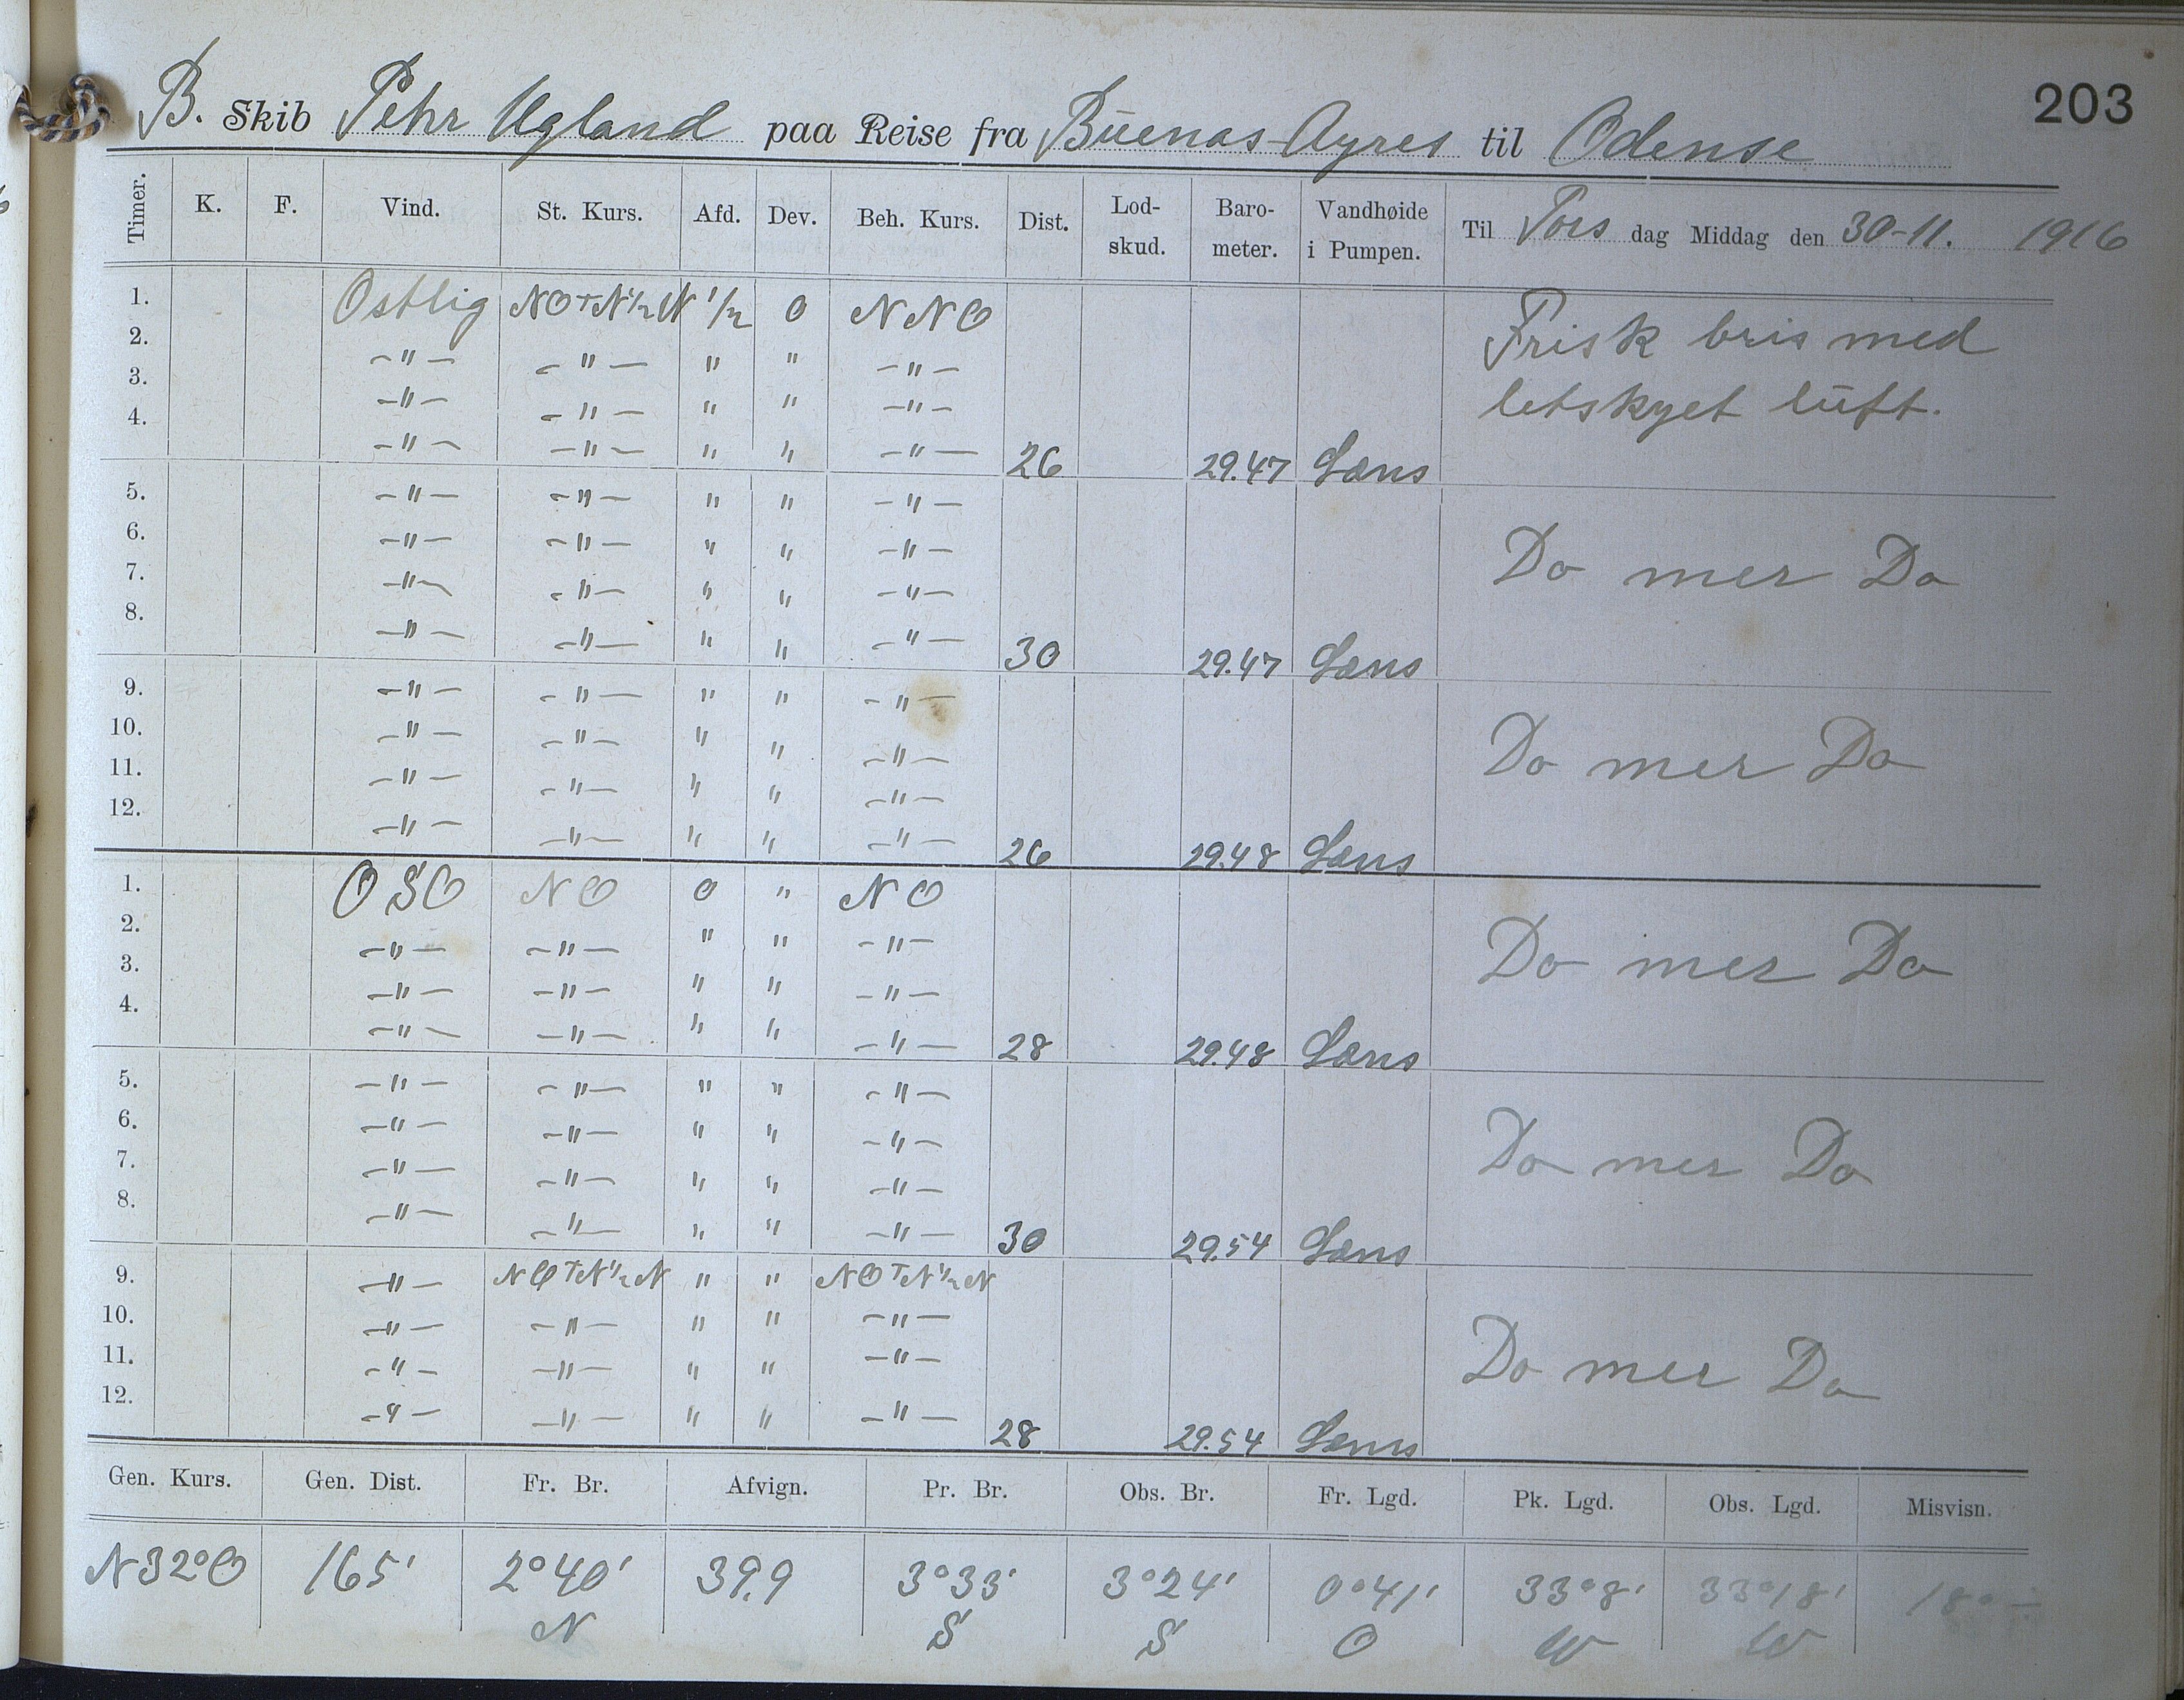 203
B. Skib Pehr Ugland paa Reise fra Buenas-Ayres til Odense
Timer. K. F. Vind. St. Kurs. Afd. Dev. Beh. Kurs. Dist. Lod-skud. Baro-meter. Vandhøide i Pumpen. Til Tors dag Middag den 30-11. 1916
1. Ostlig NOTN½N ½ 0 NNO Frisk bris med
2. -"- -"- " " -"-
3. -"- -"- " " -"- letskyet luft.
4. -"- -"- " " -"- 26 29.47 Læns
5. -"- -"- " " -"-
6. -"- -"- " " -"- Do mer Do
7. -"- -"- " " -"-
8. -"- -"- " " -"- 30 29.47 Læns
9. -"- -"- " " -"-
10. -"- -"- " " -"- Do mer Do
11. -"- -"- " " -"-
12. -"- -"- " " -"- 26 29.48 Læns
1. OSO NO 0 " NO
2. -"- -"- " " -"- Do mer Do
3. -"- -"- " " -"-
4. -"- -"- " " -"- 28 29.48 Læns
5. -"- -"- " " -"-
6. -"- -"- " " -"- Do mer Do
7. -"- -"- " " -"-
8. -"- -"- " " -"- 30 29.54 Læns
9. -"- NOTN½N " " NOTN½N
10. -"- -"- " " -"- Do mer Do
11. -"- -"- " " -"-
12. -"- -"- " " -"- 28 29.54 Læns
Gen. Kurs. Gen. Dist. Fr. Br. Afvign. Pr. Br. Obs. Br. Fr. Lgd. Pk. Lgd. Obs. Lgd. Misvisn.
N32°O 165' 2°40' 39,9 3°33' 3°24' 0°41' 33°8' 33°18' 18° -
N S S O W W